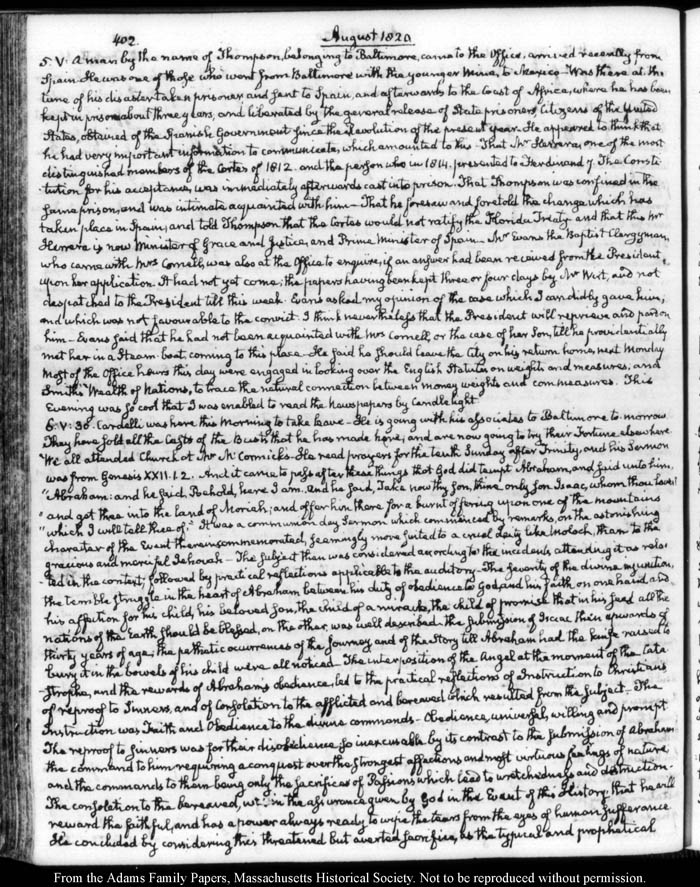 402.
August 1820
5. V. A man by the name of Thompson, belonging to Baltimore, came to the Office, arrived recently from
Spain. He was one of those who went from Baltimore with the younger Mina, to Mexico. Was there at the
time of his disaster taken prisoner and sent to Spain, and afterwards to the Coast of Africa, where he has been
kept in prison about three years, and liberated by the general release of State prisoners Citizens of the United
States, obtained of the Spanish Government since the revolution of the present year. He appeared to think that
he had very important information to communicate, which amounted to this. That Mr Herrera, one of the most
distinguished members of the Cortes of 1812. and the person who in 1814. presented to Ferdinand 7. the Consti-
tution for his acceptance, was immediately afterwards cast into prison. That Thompson was confined in the
same prison, and was intimate acquainted with him— That he foresaw and foretold the change which has
taken place in Spain; and told Thompson that the Cortes would not ratify the Florida Treaty and that this Mr
Herrera is now Minister of Grace and Justice, and Prime Minister of Spain— Mr Evans the Baptist Clergyman,
who came with Mrs Cornell, was also at the Office to enquire, if an answer had been received from the President,
upon her application. It had not yet come; the papers having been kept three or four days by Mr Wirt, and not
despatched to the President till this week. Evans asked my opinion of the case which I candidly gave him,
and which was not favourable to the convict. I think nevertheless that the President will reprieve and pardon
him— Evans said that he had not been acquainted with Mrs Cornell, or the case of her Son, till he providentially
met her in a Steam-boat coming to this place— He said he should leave the City on his return home, next Monday
Most of the Office hours this day were engaged in looking over the English Statutes on weights and measures, and
Smith's Wealth of Nations, to trace the natural connection between money weights and measures. This
Evening was so cool that I was enabled to read the newspapers by Candlelight.
6. V: 30. Cardelli was here this Morning to take leave— He is going with his associates to Baltimore to-morrow.
They have sold all the Casts of the Bust that he has made here; and are now going to try their Fortune elsewhere
We all attended Church at Mr McCormick's. He read prayers for the tenth Sunday after Trinity, and his Sermon
was from Genesis XXII. 1. 2. And it came to pass after these things that God did tempt Abraham, and said unto him,
"Abraham: and he said, Behold, here I am. And he said, Take now thy Son, thine only Son Isaac, whom thou lovest
" and get thee into the land of Moriah; and offer him there for a burnt offering upon one of the mountains
" which I will tell thee of." It was a communion day Sermon which commenced by remarks, on the astonishing
character of the Event therein commemorated, seemingly more suited to a cruel deity like Moloch, than to the
gracious and merciful Jehovah— The subject then was considered according to the incidents attending it as rela-
ted in the context; followed by practical reflections applicable to the auditory. The severity of the divine injunction,
the terrible struggle in the heart of Abraham between his duty of obedience to God, and his faith on one hand and
his affection for his child, his beloved son, the child of a miracle, the child of promise that in his seed all the
nations of the Earth should be blessed, on the other was well described. The submission of Isaac then upwards of
thirty years of age; the pathetic occurrences of the Journey, and of the Story till Abraham had the knife raised to
bury it in the bowels of his child were all noticed. The interposition of the Angel at the moment of the Cata-
strophe, and the rewards of Abraham's obedience, led to the practical reflections of Instruction to Christians
of reproof to Sinners, and of Consolation to the afflicted and bereaved which resulted from the subject— The
Instruction was Faith and Obedience to the divine commands— Obedience, universal, willing and prompt
The reproof to sinners was for their disobedience so inexcusable by its contrast to the submission of Abraham
the command to him requiring a conquest over the strongest affections and most virtuous feelings of nature,
and the commands to them being only the sacrifices of Passions which lead to wretchedness and destruction.
The consolation to the bereaved, was in the assurance given by God in the Event of this History, that he will
reward the faithful, and has a power always ready to wipe the tears from the eyes of human sufferance
He concluded by considering this threatened but averted sacrifice, as the typical and prophetical
From the Adams Family Papers, Massachusetts Historical Society. Not to be reproduced without permission.